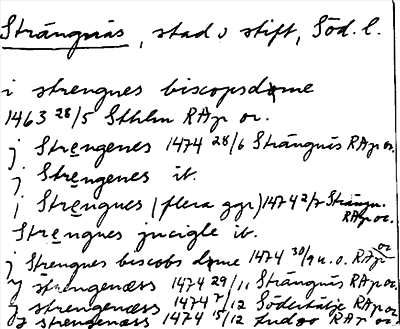 Strängnäs, stad o stift, Söd. l.
i strengnes biscopsdøme
1463 28/5 Sthlm RAp or.
j Strengenes 1474 28/6 Strängnäs RAp or.
j Strengenes ib.
j Strengnes (flera ggr) 1474 2/7 Strängn. RAp or.
Strengnes jncigle ib.
j Strengnes biscobs døme 1474 30/9 u.o. RAp or
y strengenæss 1474 29/11 Strängnäs RAp or.
y strengenæss 1474 7/12 Södertälje RAp or.
y strengenæss 1474 15/12 RAp or.